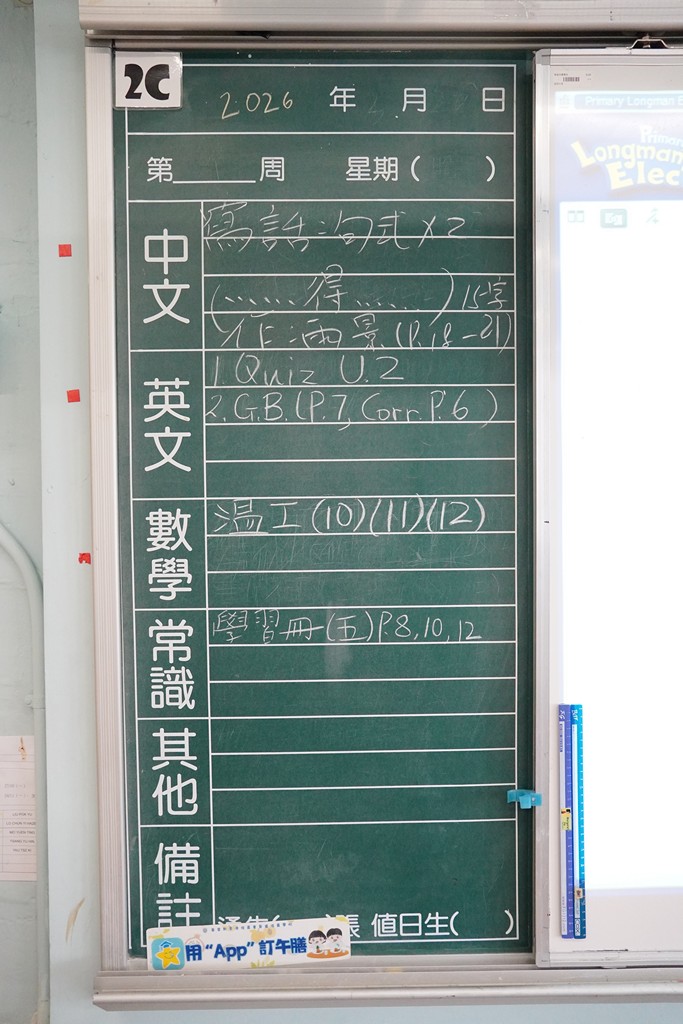 2C
2026 年 月 日
第 周 星期( )
中文
寫話:句式×2
(……得……)15字
作:雨景(P.18-21)
英文
1.Quiz U.2
2.G.B.(P.7, Corr. P.6)
數學
濕工(10)(11)(12)
常識
學習冊(五)P.8,10,12
其他
備註
張 值日生( )
用“App”訂午膳
Primary Longman E
Primar
Longman
Elec